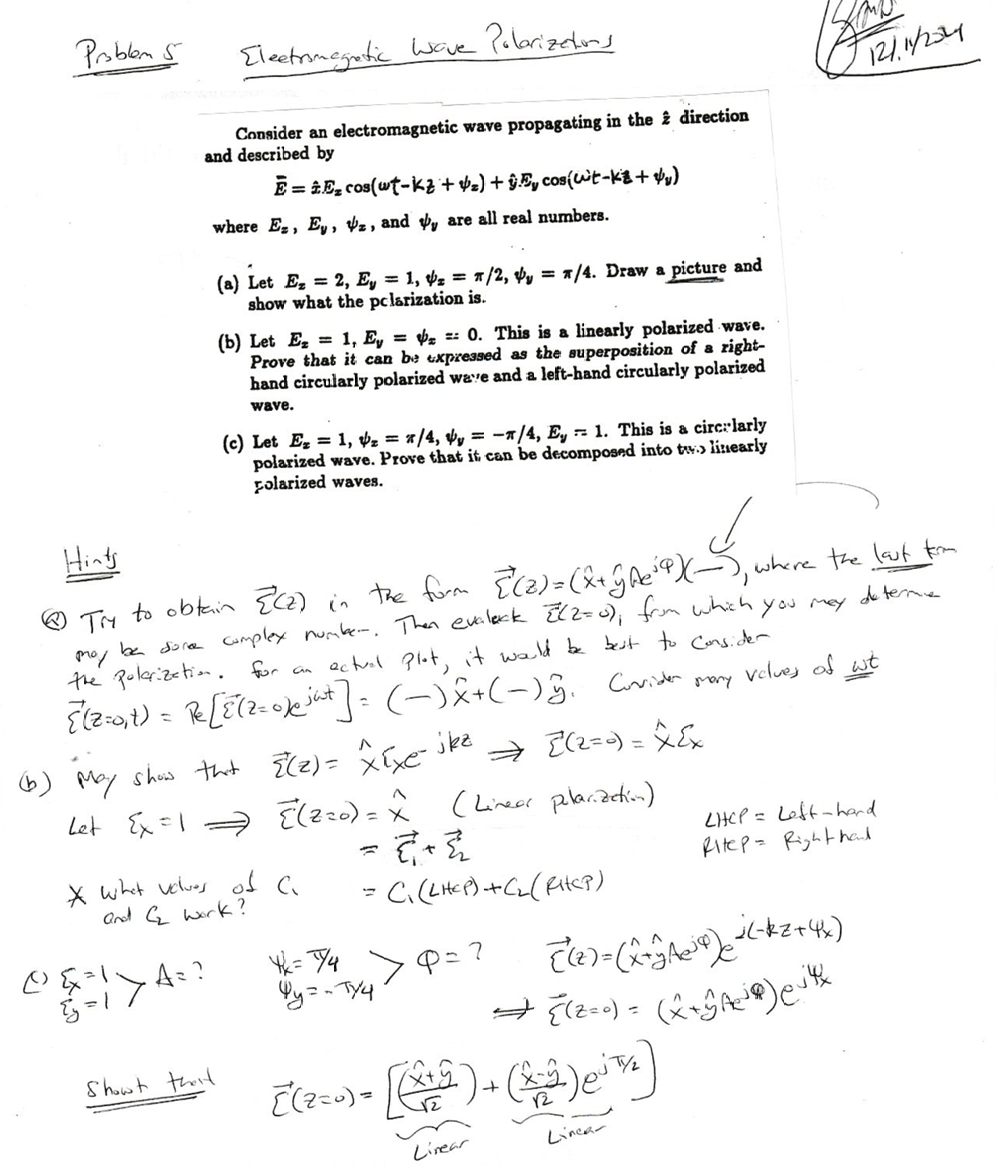 Problem 5 Electromagnetic Wave Polarizations
Consider an electromagnetic wave propagating in the ẑ direction
and described by
Ē = x̂Eₓ cos(ωt-kz + ψₓ) + ŷE_y cos(ωt-kz + ψ_y)
where Eₓ, E_y, ψₓ, and ψ_y are all real numbers.
(a) Let Eₓ = 2, E_y = 1, ψₓ = π/2, ψ_y = π/4. Draw a picture and
show what the polarization is.
(b) Let Eₓ = 1, E_y = ψₓ = 0. This is a linearly polarized wave.
Prove that it can be expressed as the superposition of a right-
hand circularly polarized wave and a left-hand circularly polarized
wave.
(c) Let Eₓ = 1, ψₓ = π/4, ψ_y = -π/4, E_y = 1. This is a circularly
polarized wave. Prove that it can be decomposed into two linearly
polarized waves.
Hints
(a) Try to obtain E⃗(z) in the form E⃗(z) = (x̂ + ŷAe^{jφ})(—), where the last term
may be some complex number. Then evaluate E⃗(z=0), from which you may determine
the polarization. For an actual plot, it would be best to consider
E⃗(z=0,t) = Re[E⃗(z=0)e^{jωt}] = (—)x̂ + (—)ŷ. Consider many values of ωt
(b) May show that E⃗(z) = x̂Eₓe^{-jkz} ⟹ E⃗(z=0) = x̂Eₓ
Let Eₓ = 1 ⟹ E⃗(z=0) = x̂ (Linear polarization)
= E⃗₁ + E⃗₂
LHCP = Left-hand
RHCP = Right hand
* What values of C₁ = C₁(LHCP) + C₂(RHCP)
and C₂ work?
(c) Eₓ=1 > A=? ψₓ = π/4 > φ = ? E⃗(z) = (x̂ + ŷAe^{jφ})e^{j(-kz+ψₓ)}
E_y=1 ψ_y = -π/4 ⟹ E⃗(z=0) = (x̂ + ŷAe^{jφ})e^{jψₓ}
Show that E⃗(z=0) = [((x̂+ŷ)/√2) + ((x̂-ŷ)/√2)e^{jπ/2}]
Linear Linear